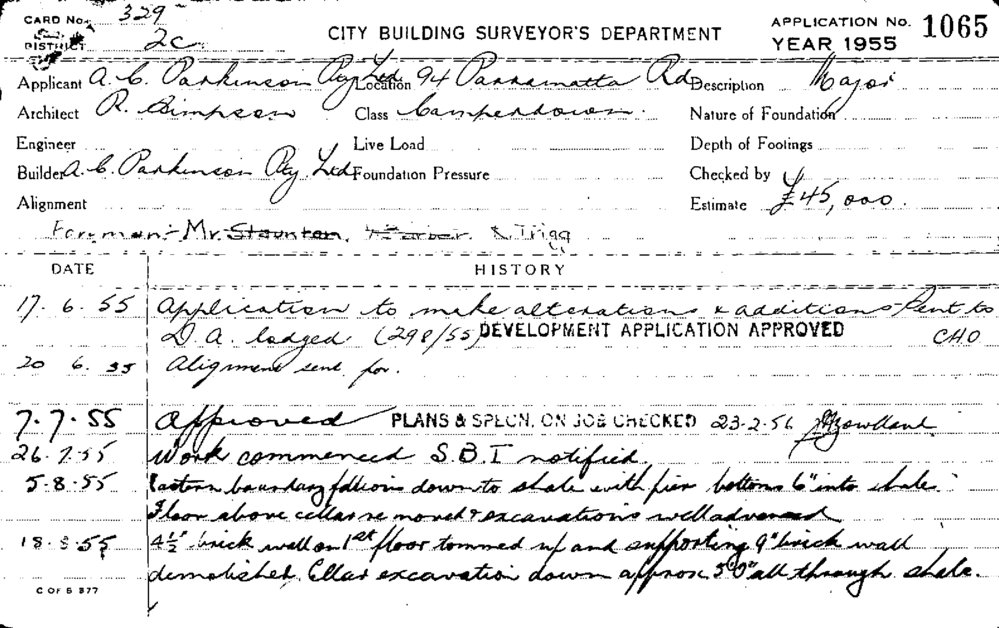 CARD No. 329
DISTRICT 2C
CITY BUILDING SURVEYOR'S DEPARTMENT
APPLICATION No. 1065
YEAR 1955
Applicant A. C. Parkinson Pty Ltd Location 94 Parramatta Rd Description Major
Architect R. Simpson Class Camperdown. Nature of Foundation
Engineer Live Load Depth of Footings
Builder A. C. Parkinson Pty Ltd Foundation Pressure Checked by
Alignment Estimate £45,000.
Foreman:- Mr. Staunton. & Trigg
DATE HISTORY
17. 6. 55 Application to make alterations & additions Sent to
D.A. lodged (298/55) DEVELOPMENT APPLICATION APPROVED CHO
20 6. 55 Alignment sent for.
7. 7. 55 Approved PLANS & SPECN. ON JOB CHECKED 23-2-56
26. 7. 55 Work commenced S.B.I notified.
5. 8. 55 Eastern boundary down to shale with pier bottoms 6" into shale.
Floor above cellar removed & excavations well advanced
18. 8. 55 4½" brick wall on 1st floor tommed up and supporting 9" brick wall
demolished. Cellar excavation down approx 5'0" all through shale.
C OF S 377